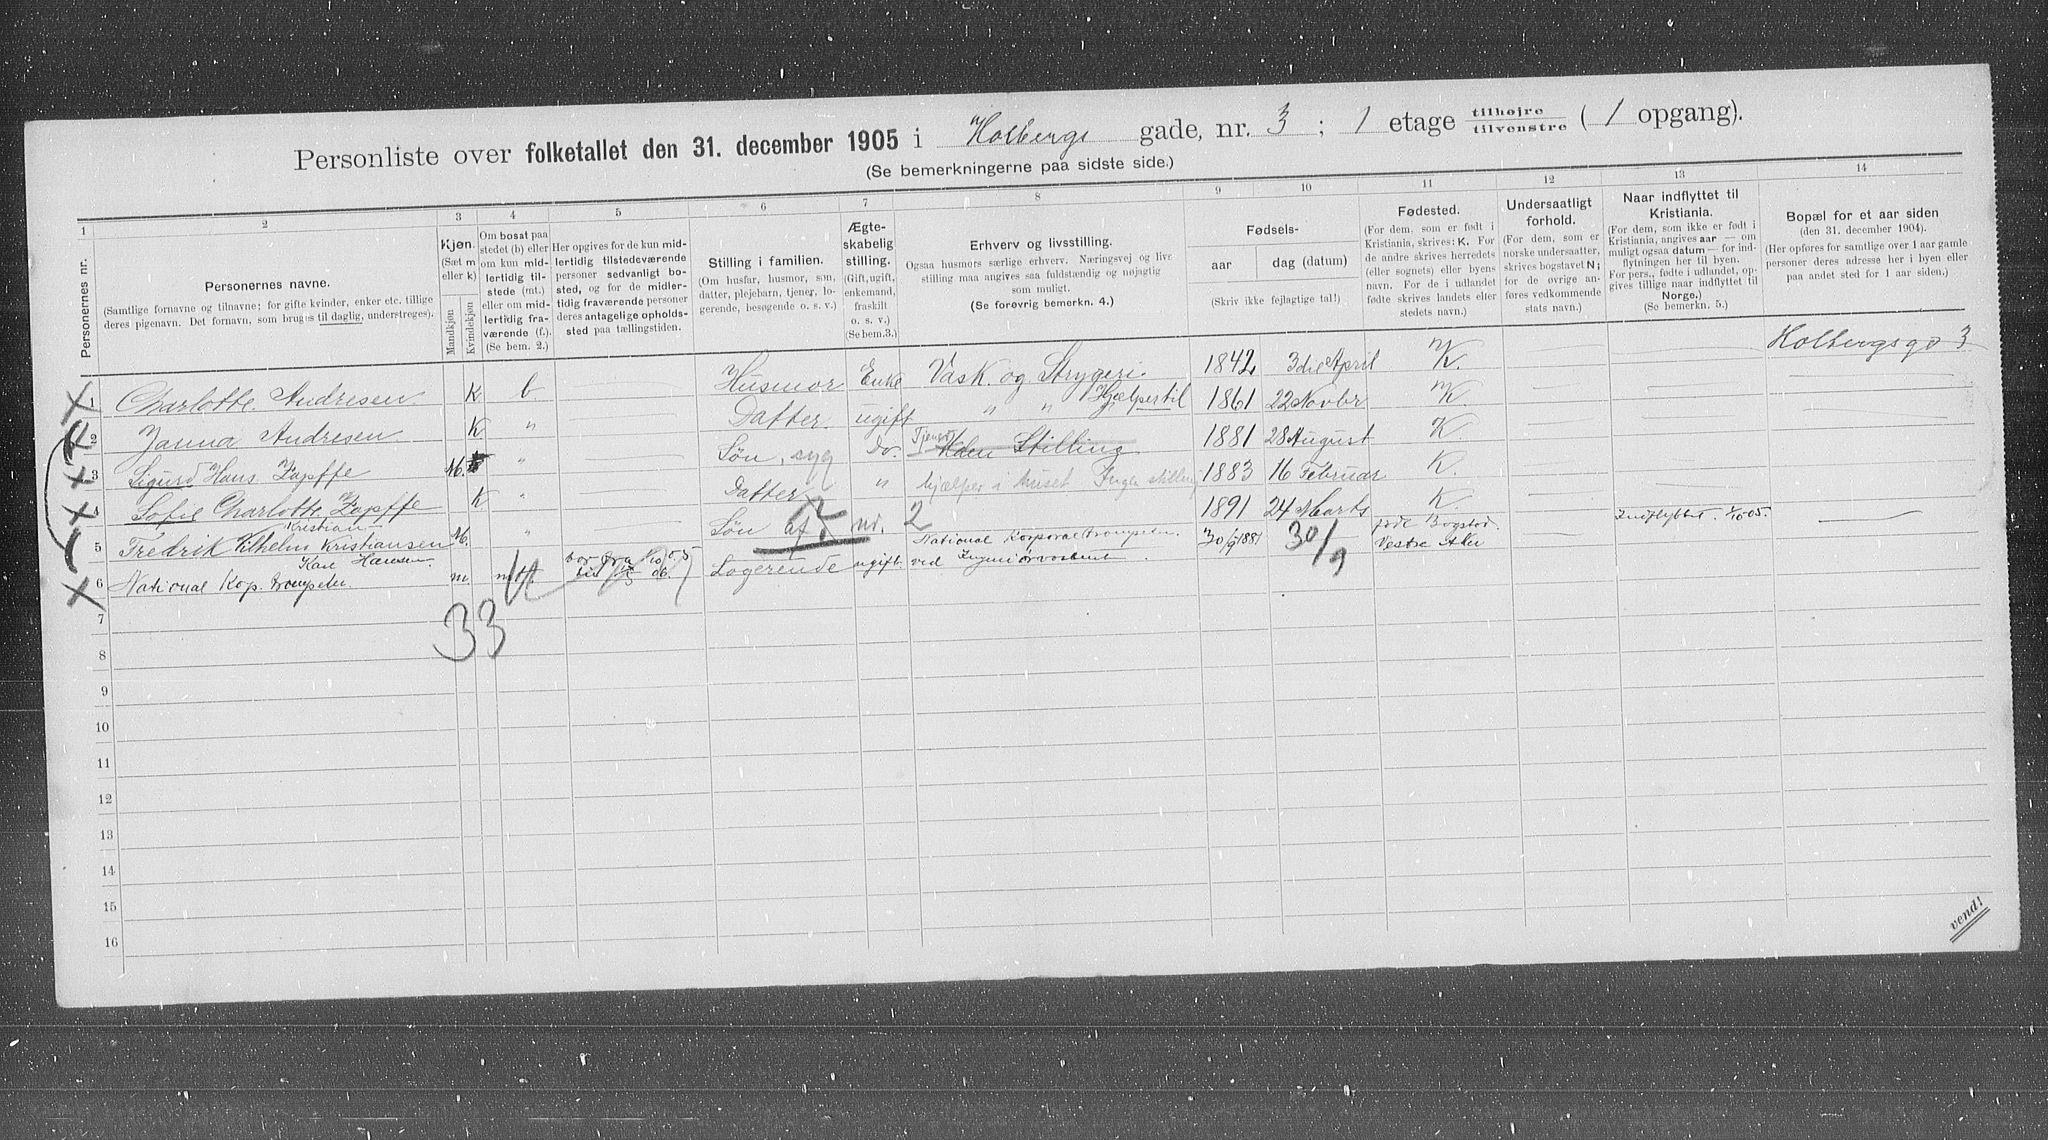 Personliste over folketallet den 31. december 1905 i Holbergs gade, nr. 3 ; 1 etage tilhøjre / tilvenstre ( 1 opgang).
(Se bemerkningerne paa sidste side.)
1 2 3 4 5 6 7 8 9 10 11 12 13 14
Personernes nr.
Personernes navne.
(Samtlige fornavne og tilnavne; for gifte kvinder, enker etc. tillige
deres pigenavn. Det fornavn, som bruges til daglig, understreges).
Kjøn.
(Sæt m
eller k)
Mandkjøn
Kvindekjøn
Om bosat paa
stedet (b) eller
om kun mid-
lertidig til-
stede (mt.)
eller om mid-
lertidig fra-
værende (f.).
(Se bem. 2.)
Her opgives for de kun mid-
lertidig tilstedeværende
personer sedvanligt bo-
sted, og for de midler-
tidig fraværende personer
deres antagelige opholds-
sted paa tællingstiden.
Stilling i familien.
(Om husfar, husmor, søn,
datter, plejebarn, tjener, lo-
gerende, besøgende o. s. v.)
Ægte-
skabelig
stilling.
(Gift, ugift,
enkemand,
fraskilt
o. s. v.)
(Se bem.3.)
Erhverv og livsstilling.
Ogsaa husmors særlige erhverv. Næringsvej og live
stilling maa angives saa fuldstændig og nøjagtig
som muligt.
(Se forøvrig bemerkn. 4.)
Fødsels-
aar
dag (datum)
(Skriv ikke fejlagtige tal!)
Fødested.
(For dem, som er født i
Kristiania, skrives: K. For
de andre skrives herredets
(eller sognets) eller byens
navn. For de i udlandet
fødte skrives landets eller
stedets navn.)
Undersaatligt
forhold.
(For dem, som er
norske undersaatter,
skrives bogstavet N;
for de øvrige an-
føres vedkommende
stats navn.)
Naar indflyttet til
Kristiania.
(For dem, som ikke er født i
Kristiania, angives aar — om
muligt ogsaa datum — for ind-
flytningen her til byen.
For pers., fødte i udlandet, op-
gives tillige naar indflyttet til
Norge.)
(Se bemerkn. 5.)
Bopæl for et aar siden
(den 31. december 1904).
(Her opføres for samtlige over 1 aar gamle
personer deres adresse her i byen eller
paa andet sted for 1 aar siden.)
X 1 Charlotte Andresen K b Husmor Enke Vask. og Strygeri. 1842 3die April K. Holbergsgd 3
2 Janna Andresen K " Datter. ugift " " Hjælpertil 1861 22 Novbr K
X 3 Sigurd Hans Zapffe M. " Søn, syg Do. Uden Stilling 1881 28 August K
X 4 Sofie Charlotte Zapffe K " Datter " hjælper i huset Ingen stilling 1883 16 Februar K.
5 Fredrik Vilhelm Kristiansen M. " Søn af nr. 2 1891 24 Marts K.
Kristian
Karl Hansen
X 6 National Kop. trompeter m. mt Logerende ugift National Korporal trompeter ved Ingeniørvaabent 30/9 1881 30/9 født Bogstad. Vestre Aker Indflyttet. 1/10 05.
33
7
8
9
10
11
12
13
14
15
16
vend!